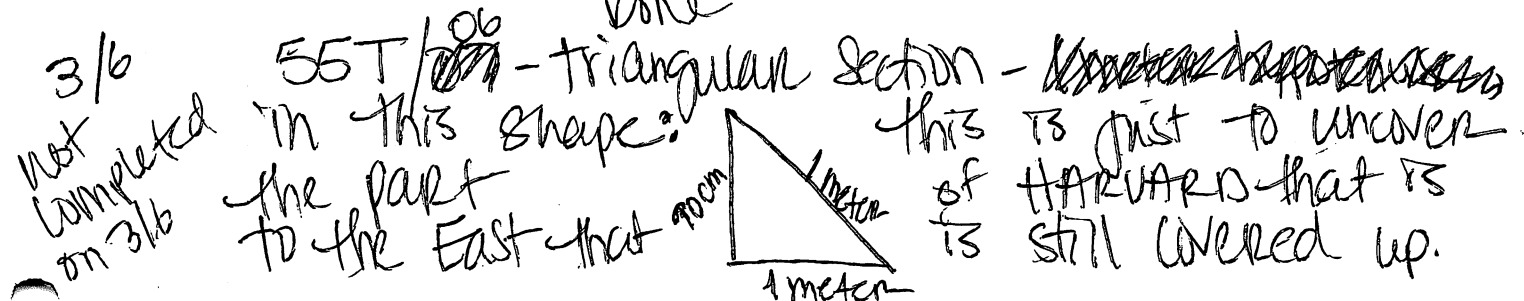 bone
3/6 55T/06 - triangular section -
not completed on 3/6
in this shape: this is just to uncover
the part of HARVARD that is
to the East that is still covered up.
90cm
1 meter
1 meter